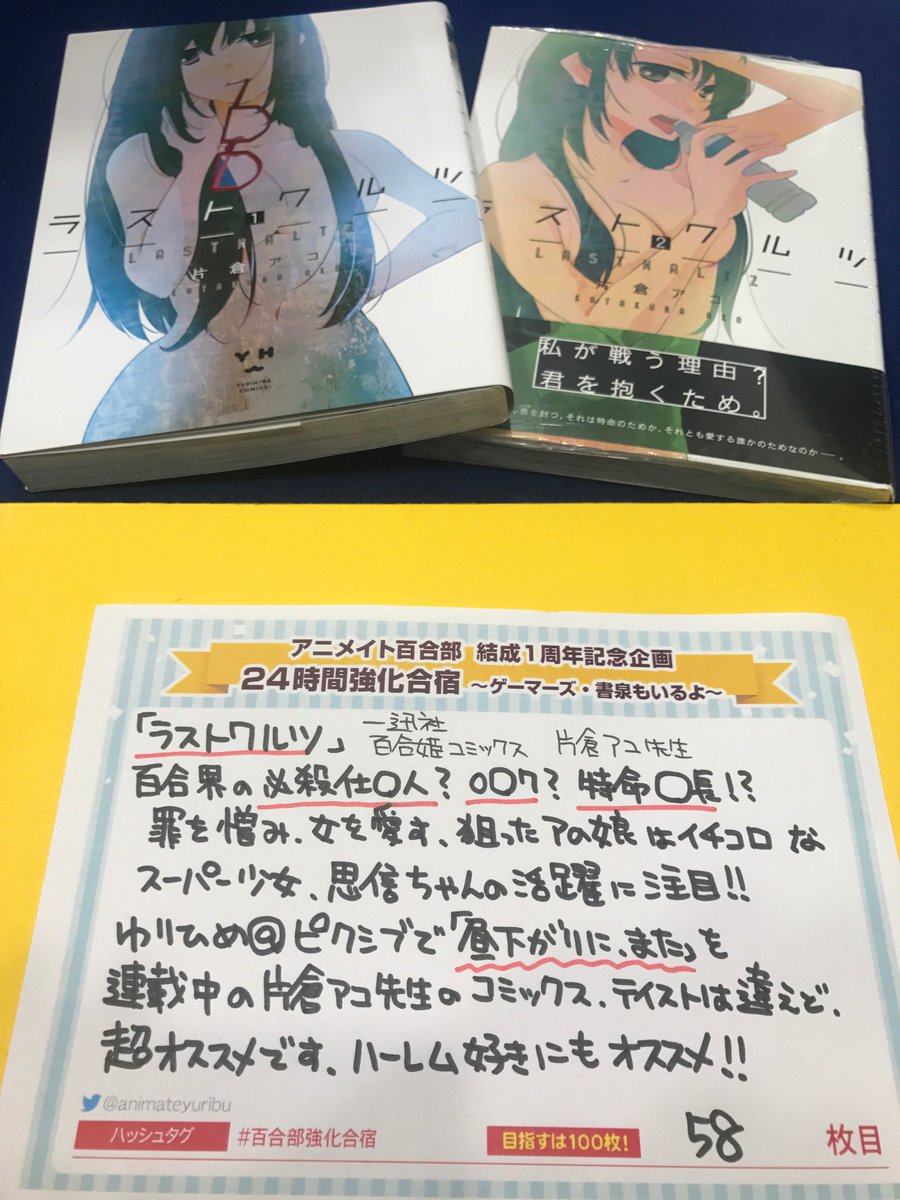 ラストワルツ
1
LAST WALTZ
片倉アコ
KATAKURA AKO
YH
YURIHIME COMICS
ラストワルツ
2
LAST WALTZ
片倉アコ
KATAKURA AKO
私が戦う理由?
君を抱くため。
悪を討つ。それは特命のためか、それとも愛する誰かのためなのか―。
アニメイト百合部 結成1周年記念企画
24時間強化合宿 ~ゲーマーズ・書泉もいるよ~
「ラストワルツ」 一迅社 百合姫コミックス 片倉アコ先生
百合界の必殺仕〇人? 〇〇7? 特命〇長!?
罪を憎み、女を愛す、狙ったアの娘はイチコロな
スーパー少女、思信ちゃんの活躍に注目!!
ゆりひめ@ピクシブで「昼下がりに、また」を
連載中の片倉アコ先生のコミックス、テイストは違えど、
超オススメです、ハーレム好きにもオススメ!!
@animateyuribu
ハッシュタグ #百合部強化合宿 目指すは100枚! 58 枚目